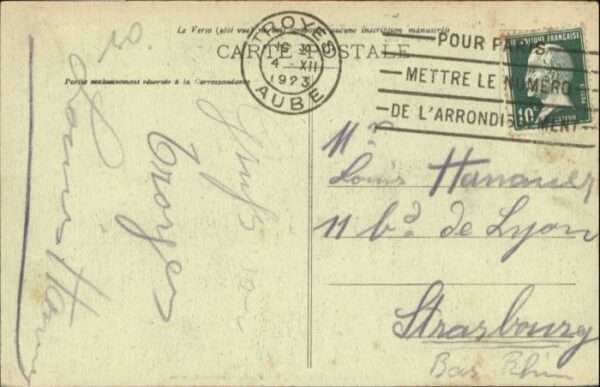 Le Verso (côté vue) ne comporte aucune inscription manuscrite
CARTE POSTALE
Partie exclusivement réservée à la Correspondance
TROYES
4 - XII
1923
AUBE
POUR PARIS
METTRE LE NUMÉRO
DE L'ARRONDISSEMENT
RÉPUBLIQUE FRANÇAISE
10c
Gruß von
Troyes
Louis
Mr
Louis Hanauer
11 bd. de Lyon
Strasbourg
Bas Rhin